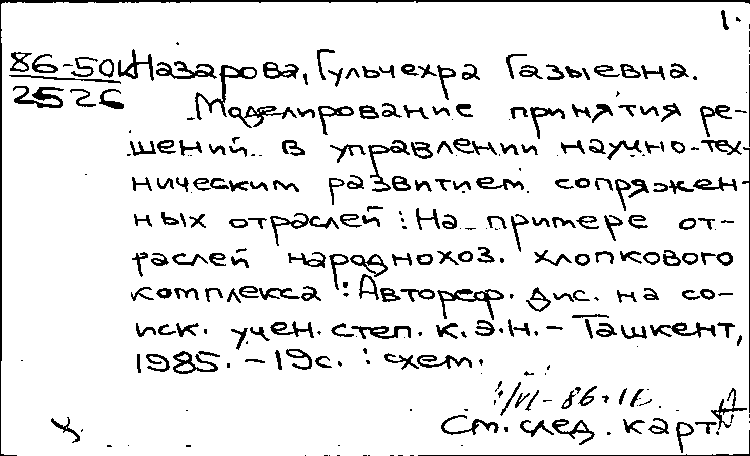 1.
86-50к Назарова, Гульчехра Газыевна.
2526
Моделирование принятия ре-
шений в управлении научно-тех-
ническим развитием сопряжен-
ных отраслей : На примере от-
раслей народнохоз. хлопкового
комплекса : Автореф. дис. на со-
иск. учен. степ. к.э.н. - Ташкент,
1985. - 19с. : схем.
/VI-86.
См. след. карт.